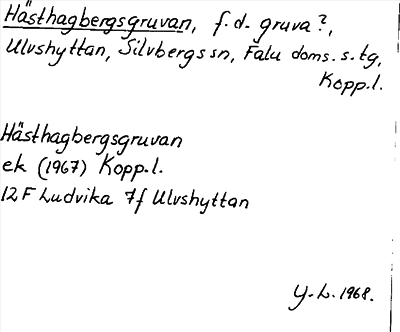 Hästhagbergsgruvan, f.d. gruva?,
Ulvshyttan, Silvbergs sn, Falu doms. s. tg,
Kopp.l.
Hästhagbergsgruvan
ek (1967) Kopp.l.
12F Ludvika 7f Ulvshyttan
Y.L. 1968.